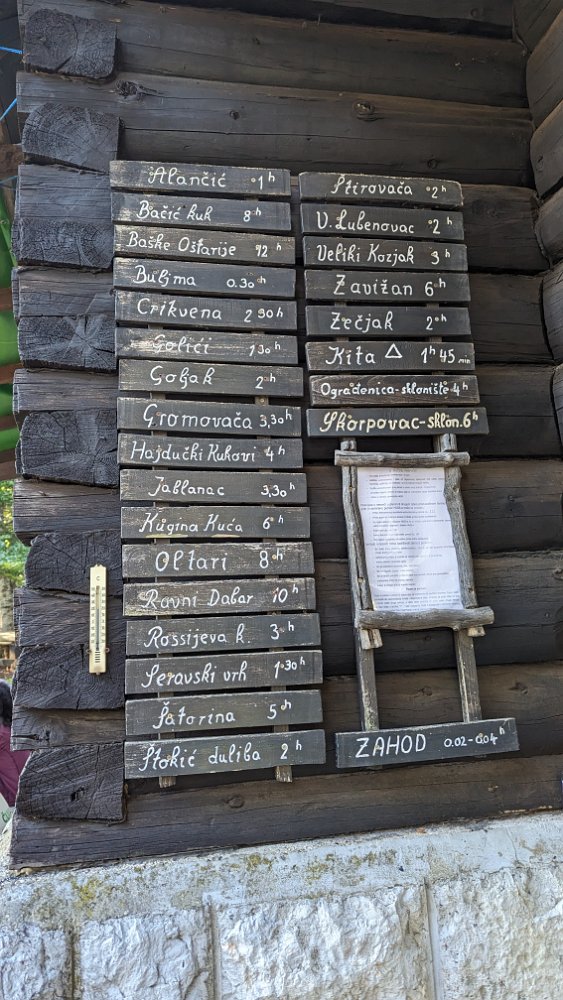 Alančić 1 h
Bačić kuk 8 h
Baške Oštarije 12 h
Buljma 0.30 h
Crikvena 2 30 h
Golići 1 30 h
Goljak 2 h
Gromovača 3,30 h
Hajdučki Kukovi 4 h
Jablanac 3,30 h
Kugina Kuća 6 h
Oltari 8 h
Ravni Dabar 10 h
Rossijeva k. 3 h
Seravski vrh 1 30 h
Šatorina 5 h
Štokić duliba 2 h
Štirovača 2 h
V. Lubenovac 2 h
Veliki Kozjak 3 h
Zavižan 6 h
Zečjak 2 h
Kita △ 1 h 45 min
Ograđenica-sklonište 4 h
Skorpovac-sklon. 6 h
ZAHOD 0.02-0.04 h